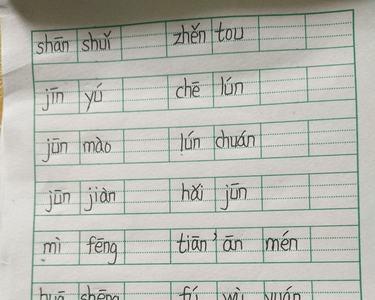 shān shuǐ zhěn tou
jīn yú chē lún
jūn mào lún chuán
jūn jiàn hǎi jūn
mì fēng tiān' ān mén
huā shēng fú wù yuán